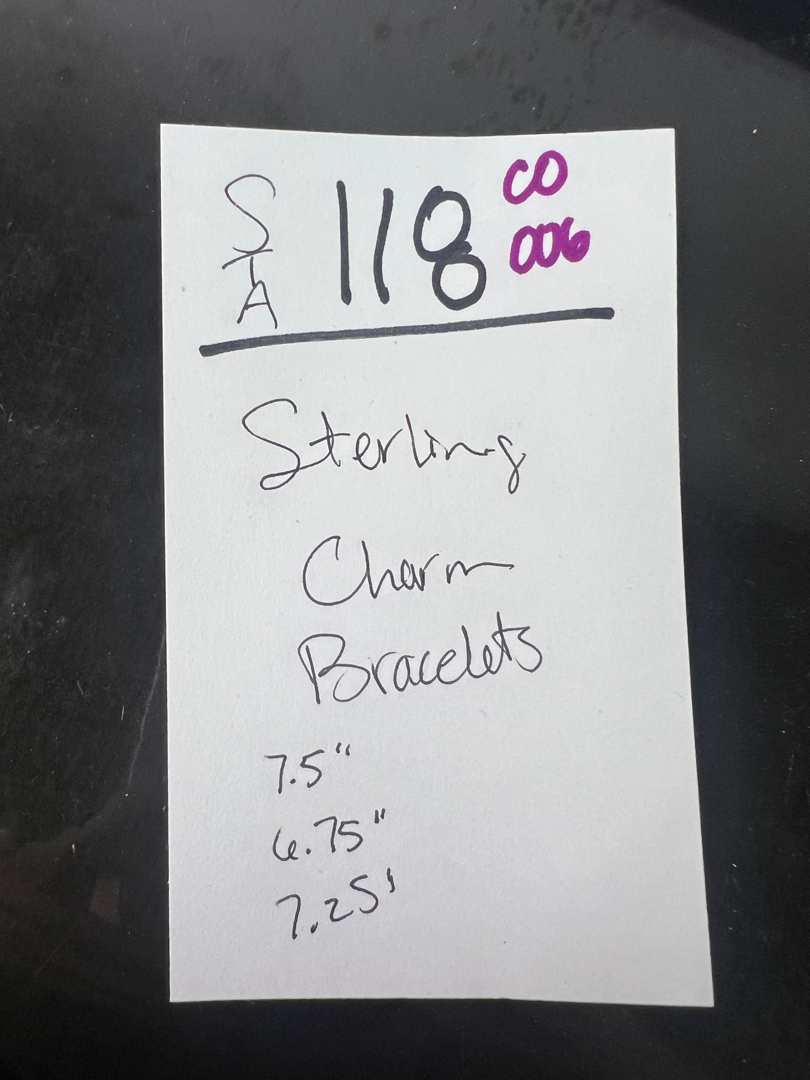 STA 118 CO 006
Sterling
Charm
Bracelets
7.5"
6.75"
7.25'